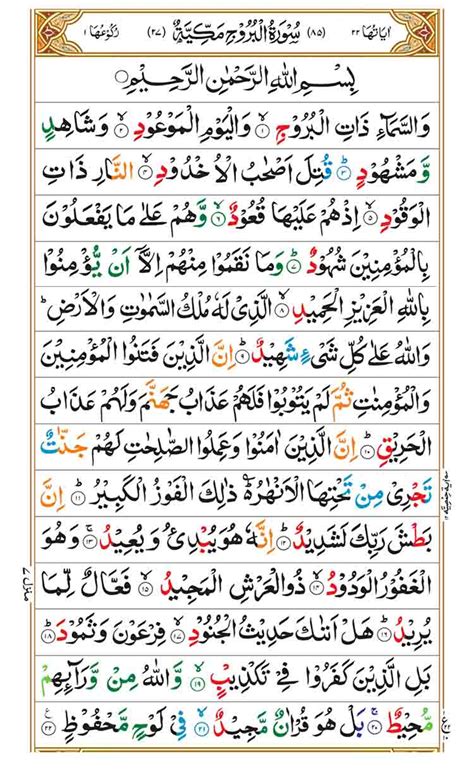 اٰیَاتُهَا ۲۲ (۸۵) سُوْرَةُ الْبُرُوْجِ مَكِّیَّةٌ (۲۷) رُكُوْعُهَا ۱
بِسْمِ اللّٰهِ الرَّحْمٰنِ الرَّحِیْمِ
وَالسَّمَآءِ ذَاتِ الْبُرُوْجِ ۙ﴿۱﴾ وَالْیَوْمِ الْمَوْعُوْدِ ۙ﴿۲﴾ وَشَاهِدٍ
وَّمَشْهُوْدٍ ؕ﴿۳﴾ قُتِلَ اَصْحٰبُ الْاُخْدُوْدِ ۙ﴿۴﴾ النَّارِ ذَاتِ
الْوَقُوْدِ ۙ﴿۵﴾ اِذْ هُمْ عَلَیْهَا قُعُوْدٌ ۙ﴿۶﴾ وَّهُمْ عَلٰی مَا یَفْعَلُوْنَ
بِالْمُؤْمِنِیْنَ شُهُوْدٌ ؕ﴿۷﴾ وَمَا نَقَمُوْا مِنْهُمْ اِلَّاۤ اَنْ یُّؤْمِنُوْا
بِاللّٰهِ الْعَزِیْزِ الْحَمِیْدِ ۙ﴿۸﴾ الَّذِیْ لَهٗ مُلْكُ السَّمٰوٰتِ وَالْاَرْضِ ؕ
وَاللّٰهُ عَلٰی كُلِّ شَیْءٍ شَهِیْدٌ ؕ﴿۹﴾ اِنَّ الَّذِیْنَ فَتَنُوا الْمُؤْمِنِیْنَ
وَالْمُؤْمِنٰتِ ثُمَّ لَمْ یَتُوْبُوْا فَلَهُمْ عَذَابُ جَهَنَّمَ وَلَهُمْ عَذَابُ
الْحَرِیْقِ ؕ﴿۱۰﴾ اِنَّ الَّذِیْنَ اٰمَنُوْا وَعَمِلُوا الصّٰلِحٰتِ لَهُمْ جَنّٰتٌ
تَجْرِیْ مِنْ تَحْتِهَا الْاَنْهٰرُ ؕ۬ ذٰلِكَ الْفَوْزُ الْكَبِیْرُ ؕ﴿۱۱﴾ اِنَّ
بَطْشَ رَبِّكَ لَشَدِیْدٌ ؕ﴿۱۲﴾ اِنَّهٗ هُوَ یُبْدِئُ وَیُعِیْدُ ۚ﴿۱۳﴾ وَهُوَ
الْغَفُوْرُ الْوَدُوْدُ ۙ﴿۱۴﴾ ذُو الْعَرْشِ الْمَجِیْدُ ۙ﴿۱۵﴾ فَعَّالٌ لِّمَا
یُرِیْدُ ؕ﴿۱۶﴾ هَلْ اَتٰىكَ حَدِیْثُ الْجُنُوْدِ ۙ﴿۱۷﴾ فِرْعَوْنَ وَثَمُوْدَ ؕ﴿۱۸﴾
بَلِ الَّذِیْنَ كَفَرُوْا فِیْ تَكْذِیْبٍ ۙ﴿۱۹﴾ وَّاللّٰهُ مِنْ وَّرَآىِٕهِمْ
مُّحِیْطٌ ۚ﴿۲۰﴾ بَلْ هُوَ قُرْاٰنٌ مَّجِیْدٌ ۙ﴿۲۱﴾ فِیْ لَوْحٍ مَّحْفُوْظٍ ﴿۲۲﴾